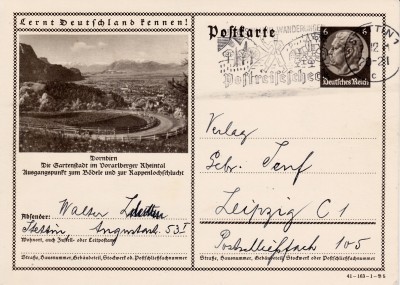 Lernt Deutschland kennen!
Postkarte
WANDERN
Postreisescheck
6 6
Deutsches Reich
Dornbirn
Die Gartenstadt im Vorarlberger Rheintal
Ausgangspunkt zum Bödele und zur Rappenlochschlucht
Absender: Walter
Stettin Augustastr. 53 I
Wohnort, auch Zustell- oder Leitpostamt
Straße, Hausnummer, Gebäudeteil, Stockwerk od. Postschließfachnummer
Verlag
Gebr. Senf
Leipzig C 1
Postschließfach 105
Straße, Hausnummer, Gebäudeteil, Stockwerk oder Postschließfachnummer
41-163-1-B 6